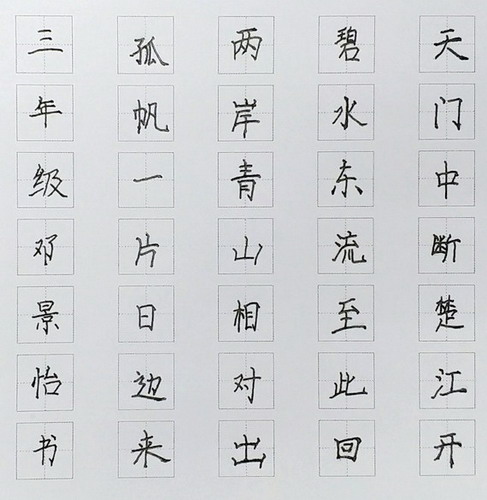 天门中断楚江开
碧水东流至此回
两岸青山相对出
孤帆一片日边来
三年级邓景怡书